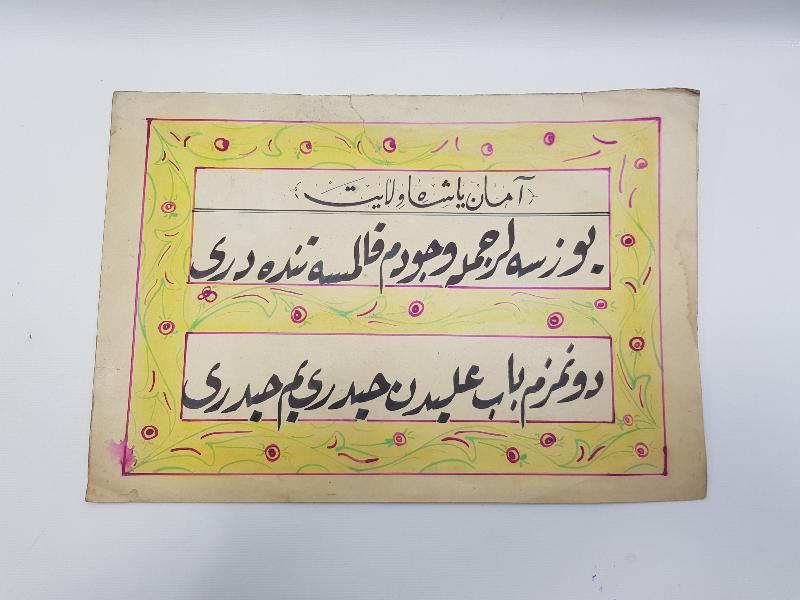 ﴿آمان یا شاه ولایت﴾
یوزسه لر جمله وجودم قالمسه تنده دری
دونمزم باب علیدن حیدری یم حیدری